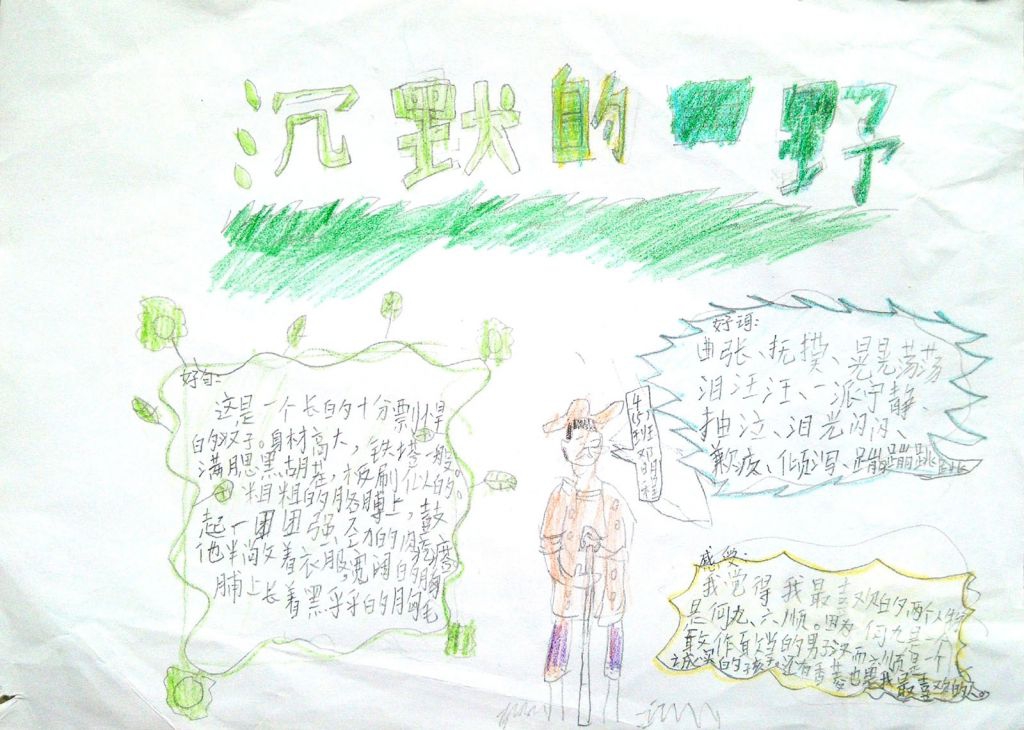 沉默的一野
好句:
这是一个长的十分剽悍
的汉子。身材高大，铁塔一般。
满腮黑胡茬，板刷似的。
粗粗的胳膊上，鼓
起一团团强劲的肉疙瘩
他半敞着衣服，宽阔的胸
脯上长着黑乎乎的胸毛
4(5)班
邓
好词:
曲张、抚摸、晃晃荡荡
泪汪汪、一派宁静、
抽泣、泪光闪闪、
歉疚、倾泻、蹦蹦跳跳
感受:
我觉得我最喜欢的两个人物
是何九、六顺。因为何九是一个
敢作敢当的男子汉而六顺是一个
诚实的孩子还有香菱也是我最喜欢的人。